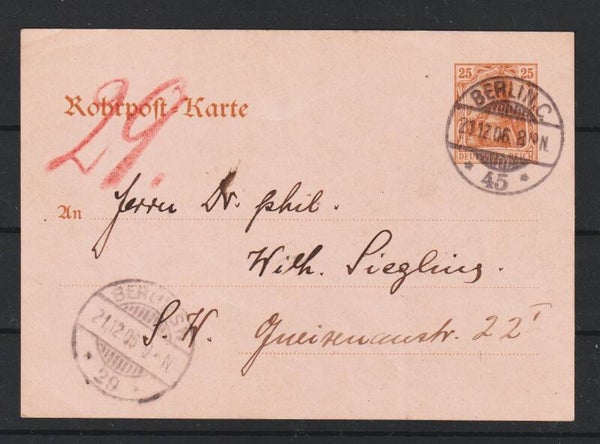 25 25
DEUTSCHES REICH
BERLIN, C.
21.12.06. 8-N.
* 45 *
Rohrpost-Karte
29.
An Herrn Dr. phil.
Wilh. Sieglin
S. W. Gneisenaustr. 22 I
BERLIN
21.12.06. 9-N
* 29 *